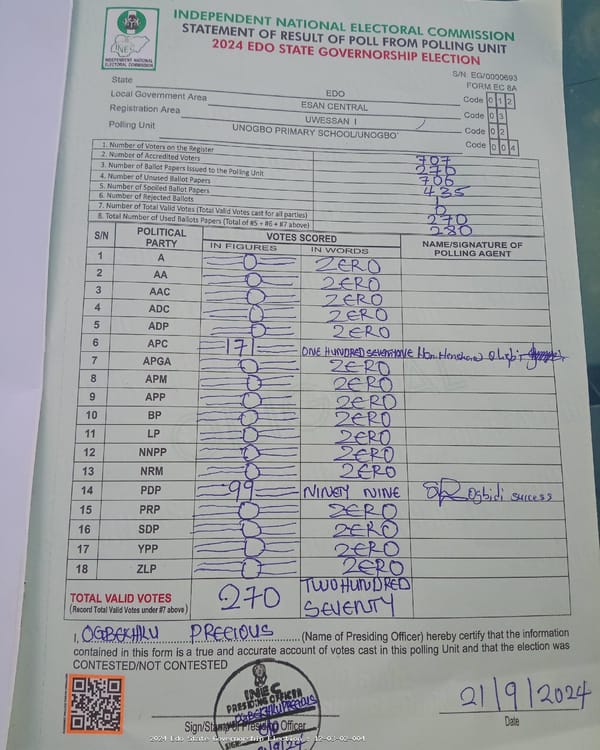 INDEPENDENT NATIONAL ELECTORAL COMMISSION
STATEMENT OF RESULT OF POLL FROM POLLING UNIT
2024 EDO STATE GOVERNORSHIP ELECTION
INEC
INDEPENDENT NATIONAL
ELECTORAL COMMISSION
S/N: EG/0000693
FORM EC 8A
State EDO Code 0 1 2
Local Government Area ESAN CENTRAL Code 0 3
Registration Area UWESSAN I Code 0 2
Polling Unit UNOGBO PRIMARY SCHOOL/UNOGBO Code 0 0 4
1. Number of Voters on the Register 707
2. Number of Accredited Voters 270
3. Number of Ballot Papers Issued to the Polling Unit 706
4. Number of Unused Ballot Papers 435
5. Number of Spoiled Ballot Papers 1
6. Number of Rejected Ballots
7. Number of Total Valid Votes (Total Valid Votes cast for all parties) 270
8. Total Number of Used Ballots Papers (Total of #5 + #6 + #7 above) 280
S/N POLITICAL PARTY VOTES SCORED NAME/SIGNATURE OF POLLING AGENT
IN FIGURES IN WORDS
1 A 0 ZERO
2 AA 0 ZERO
3 AAC 0 ZERO
4 ADC 0 ZERO
5 ADP 0 ZERO
6 APC 171 ONE HUNDRED SEVENTY ONE Hon.
7 APGA 0 ZERO
8 APM 0 ZERO
9 APP 0 ZERO
10 BP 0 ZERO
11 LP 0 ZERO
12 NNPP 0 ZERO
13 NRM 0 ZERO
14 PDP 99 NINETY NINE Ogbidi success
15 PRP 0 ZERO
16 SDP 0 ZERO
17 YPP 0 ZERO
18 ZLP 0 ZERO
TOTAL VALID VOTES 270 TWO HUNDRED
(Record Total Valid Votes under #7 above) SEVENTY
I, OGBEKHILU PRECIOUS (Name of Presiding Officer) hereby certify that the information
contained in this form is a true and accurate account of votes cast in this polling Unit and that the election was
CONTESTED/NOT CONTESTED
INEC
PRESIDING OFFICER
OGBEKHILU PRECIOUS
21/9/24
21/9/2024
Sign/Stamp of Presiding Officer
Date
2024 Edo State Governorship Election - 12-03-02-004